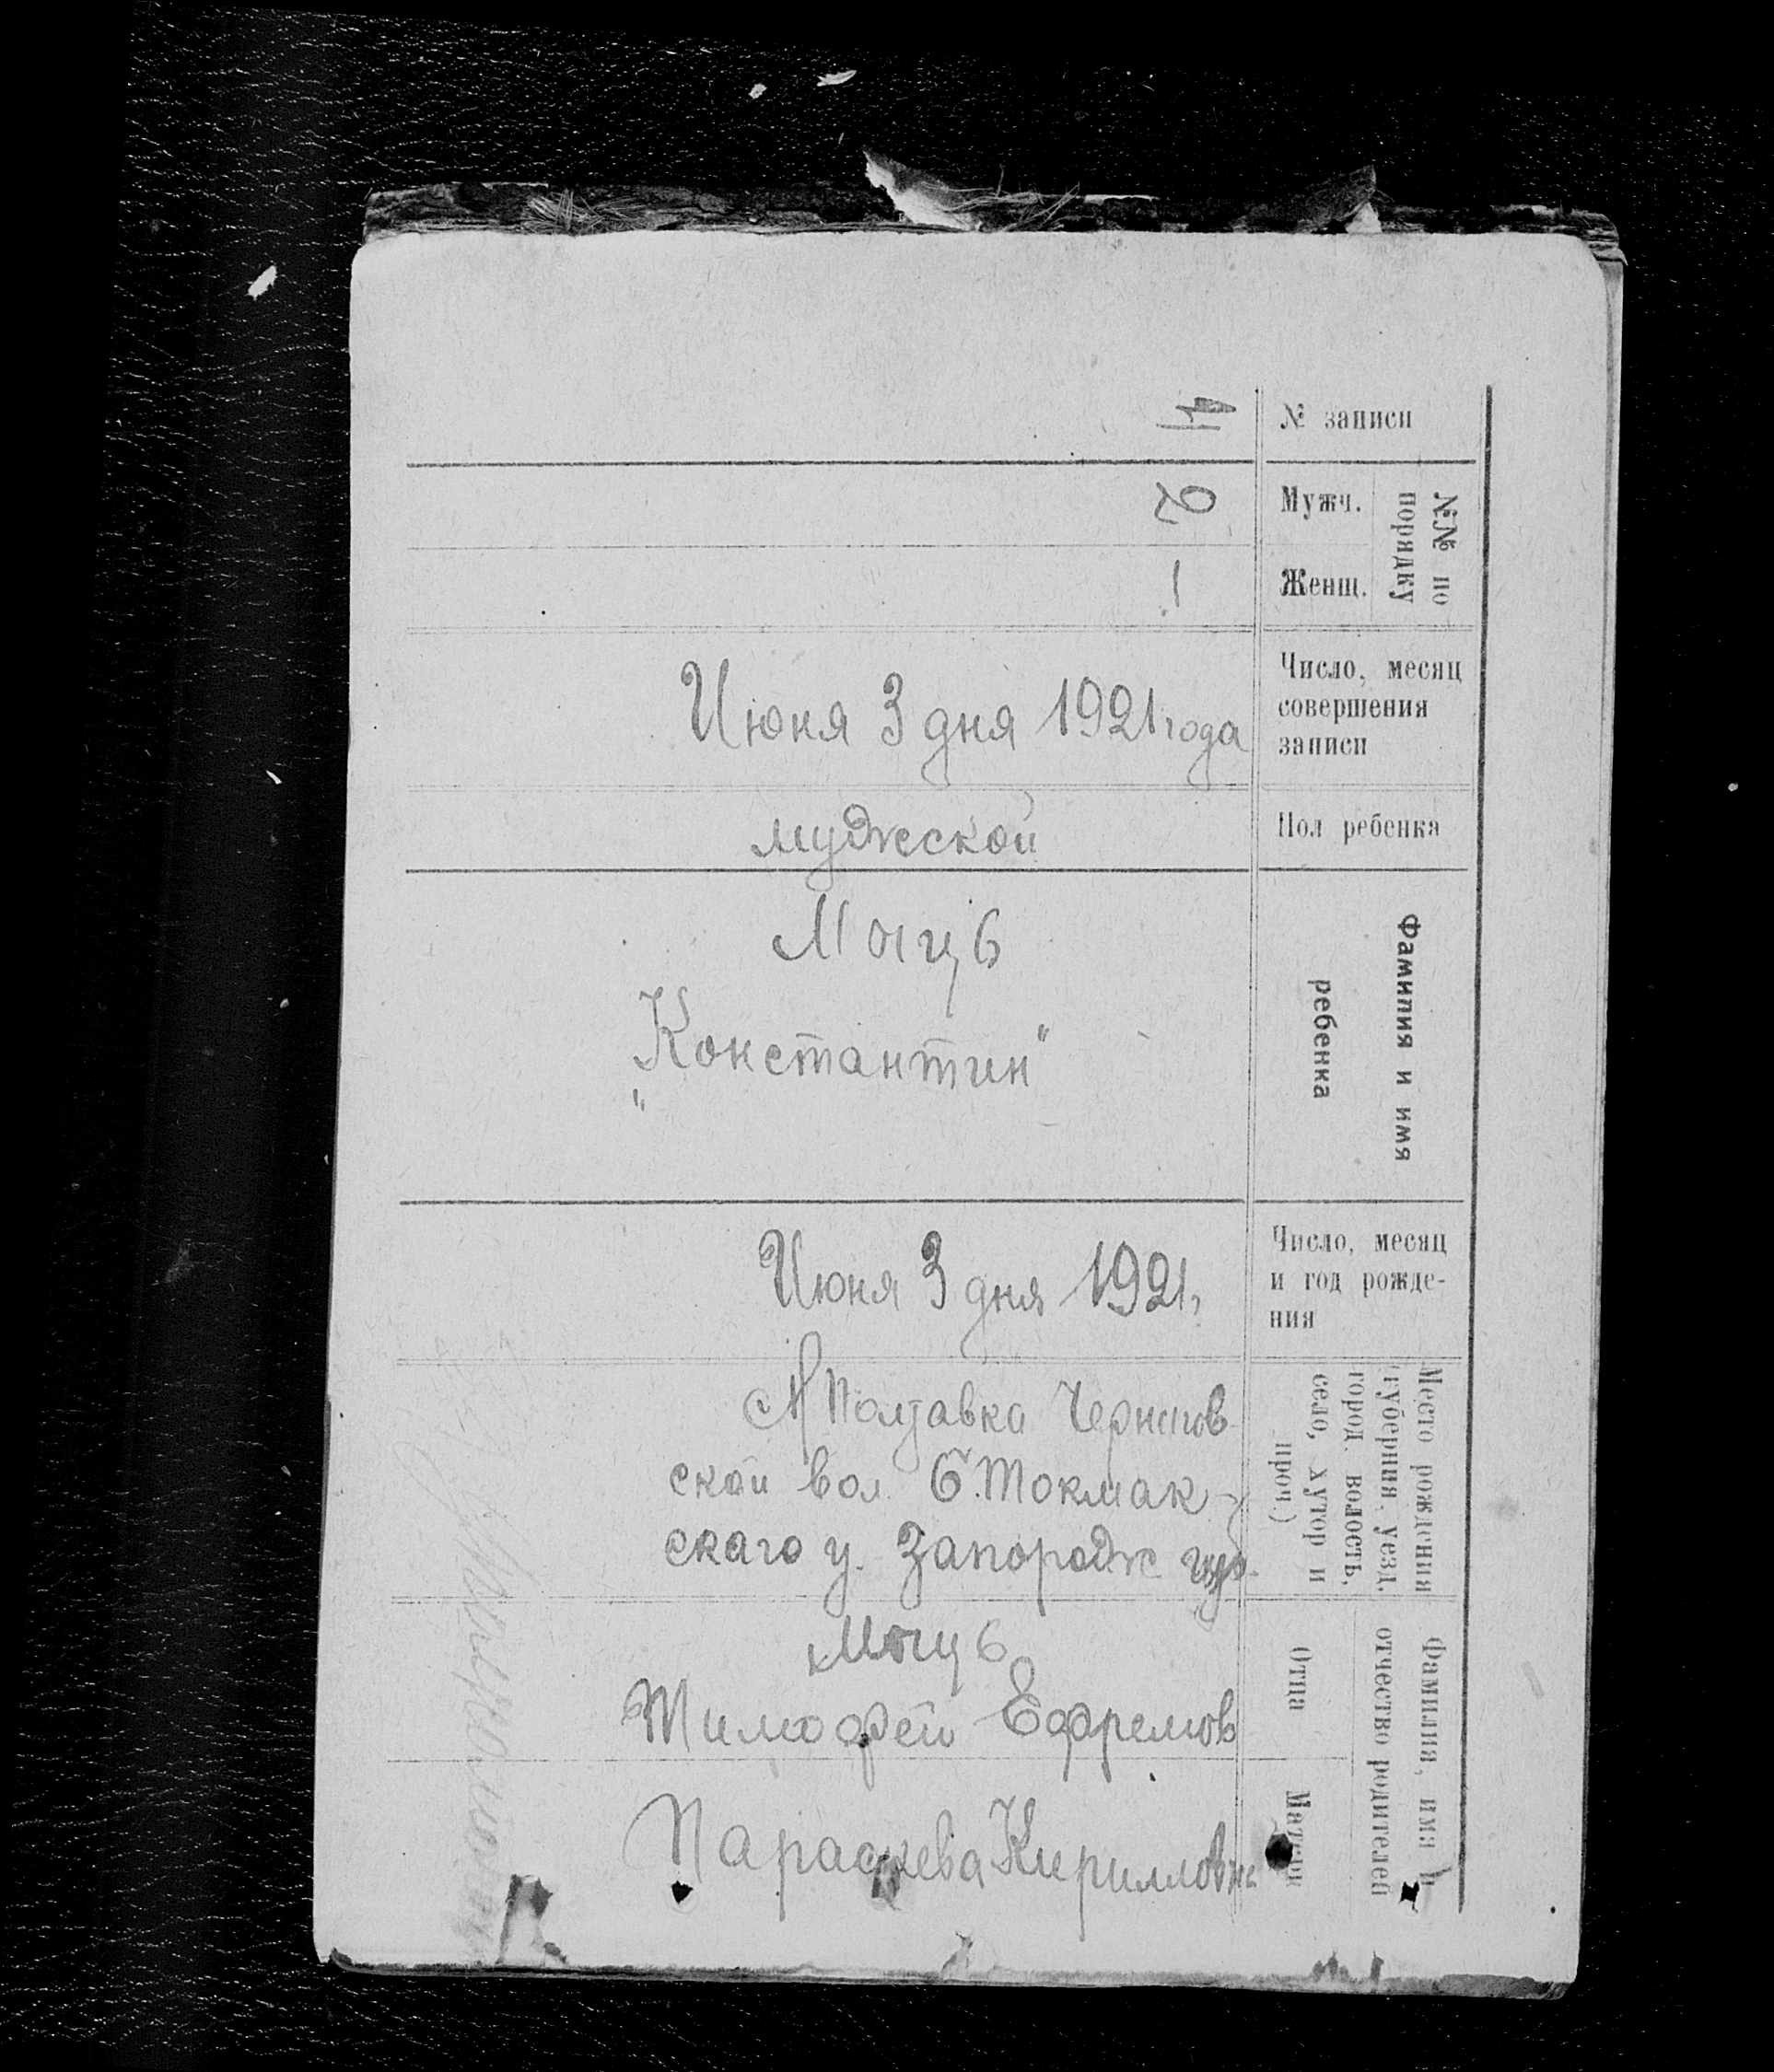 № записи
4
№№ по
порядку
Мужч.
2
Женщ.
1
Число, месяц
совершения
записи
Июня 3 дня 1921 года
Пол ребенка
мужеской
Фамилия и имя
ребенка
"Константин"
Число, месяц
и год рожде-
ния
Июня 3 дня 1921,
Место рождения
(губерния, уезд,
город, волость,
село, хутор и
проч.)
Полтавка Чернигов-
ской вол. Б. Токмак-
скаго у. Запорож губ.
Фамилия, имя и
отчество родителей
Отца
Тимофей Ефремов
Матери
Параскева Кирилловна